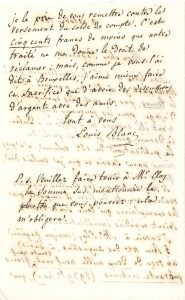 je le prie de vous remettre contre les
versement du solde de compte. C'est
cinq cents francs de moins que notre
traité ne me donne le droit de
réclamer : mais, comme je vous l'ai
dit à Bruxelles, j'aime mieux faire
ce sacrifice que d'avoir des
d'argent avec des amis.
Tout à vous
Louis Blanc
P.S. Veuillez faire tenir à Mr.
la somme sus-mentionnée le
plustôt que vous pourrez : cela
m'obligera.